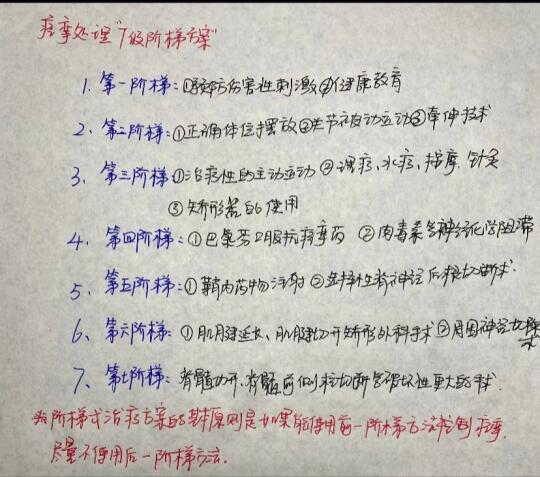 痉挛处理"7级阶梯方案"
1. 第一阶梯:①预防伤害性刺激②健康教育
2、第二阶梯:①正确体位摆放②关节被动运动③牵伸技术
3、第三阶梯①治疗性的主动运动②理疗、水疗、按摩、针灸
③矫形器的使用
4、第四阶梯:①巴氯芬口服抗痉挛药 ②肉毒素等神经化学阻滞
5、第五阶梯:①鞘内药物注射②选择性脊神经后根切断术.
6、第六阶梯:①肌腱延长、肌腱切开矫形外科手术②周围神经切除术
7、第七阶梯:脊髓切开、脊髓前侧柱切断等破坏性更大的手术.
阶梯式治疗方案的基本原则是如果能使用前一阶梯方法控制痉挛,
尽量不使用后一阶梯方法.